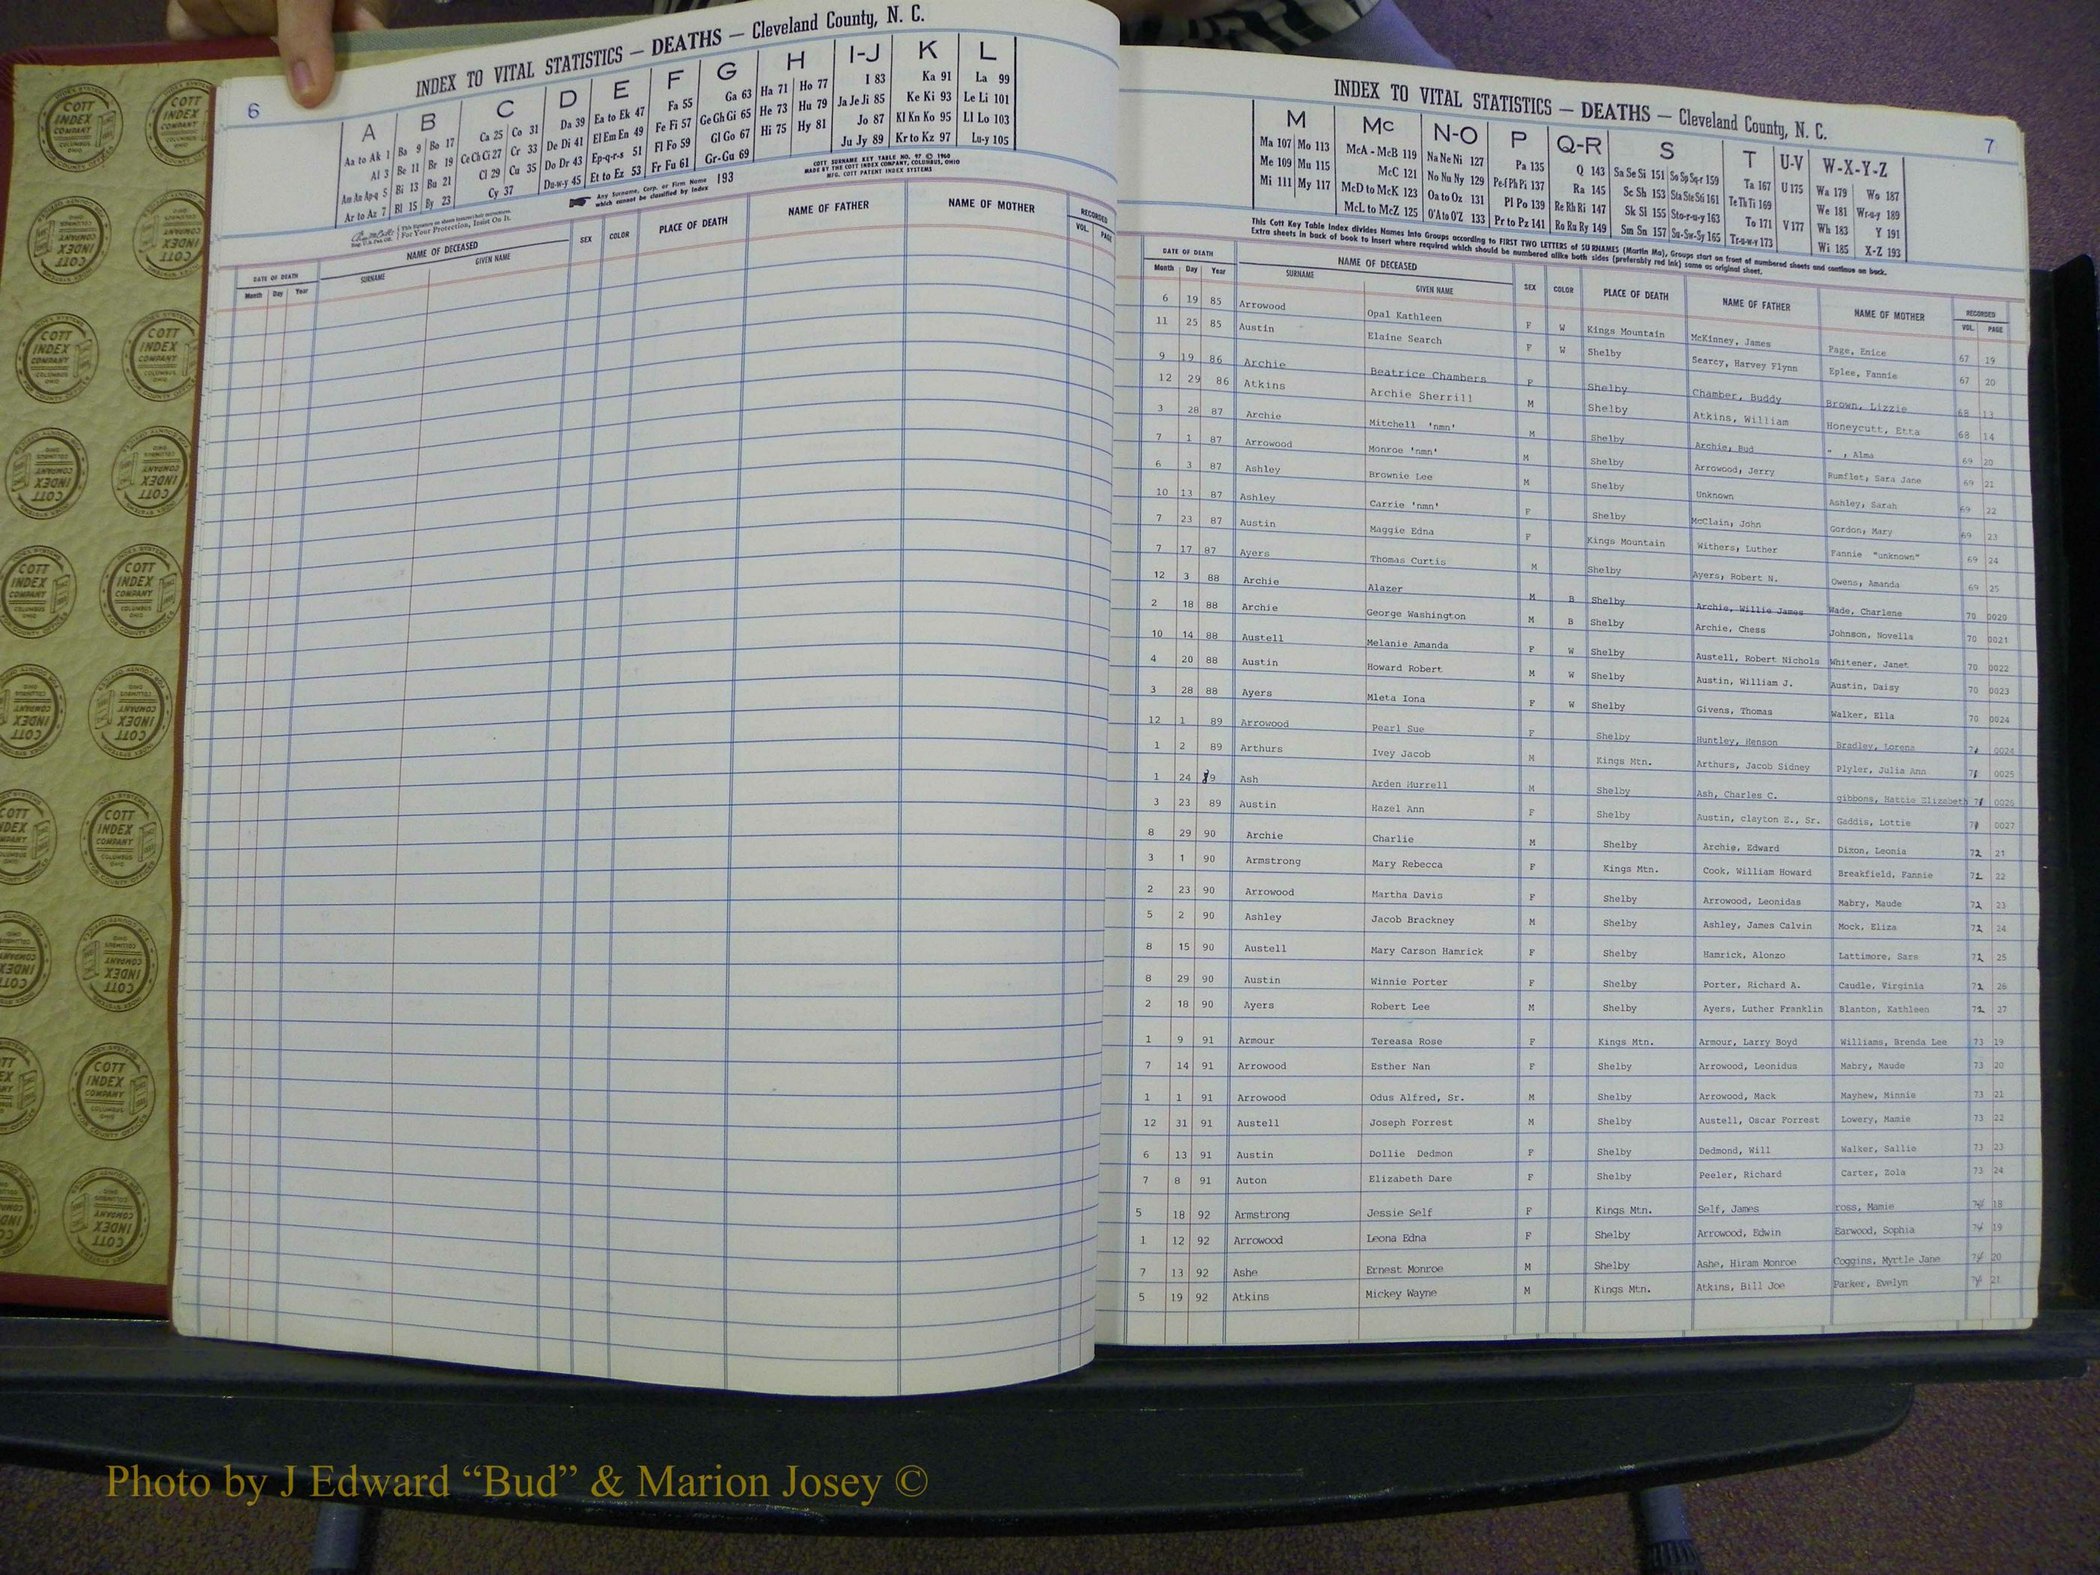 6
INDEX TO VITAL STATISTICS — DEATHS — Cleveland County, N. C.
A B C D E F G H I-J K L
Aa to Ak 1 Ba 9 Bo 17 Ca 25 Co 31 Da 39 Ea to Ek 47 Fa 55 Ga 63 Ha 71 Ho 77 I 83 Ka 91 La 99
Al 3 Be 11 Br 19 Ce Ch Ci 27 Cr 33 De Di 41 El Em En 49 Fe Fi 57 Ge Gh Gi 65 He 73 Hu 79 Ja Je Ji 85 Ke Ki 93 Le Li 101
Am An Ap-q 5 Bi 13 Bu 21 Cl 29 Cu 35 Do Dr 43 Ep-q-r-s 51 Fl Fo 59 Gl Go 67 Hi 75 Hy 81 Jo 87 Kl Kn Ko 95 Ll Lo 103
Ar to Az 7 Bl 15 By 23 Cy 37 Du-w-y 45 Et to Ez 53 Fr Fu 61 Gr-Gu 69 Ju Jy 89 Kr to Kz 97 Lu-y 105
COTT SURNAME KEY TABLE NO. 97 © 1960
MADE BY THE COTT INDEX COMPANY, COLUMBUS, OHIO
MFG. COTT PATENT INDEX SYSTEMS
Any Surname, Corp. or Firm Name which cannot be classified by Index 193
For Your Protection, Insist On It.
DATE OF DEATH NAME OF DECEASED SEX COLOR PLACE OF DEATH NAME OF FATHER NAME OF MOTHER RECORDED
Month Day Year SURNAME GIVEN NAME VOL. PAGE
INDEX TO VITAL STATISTICS — DEATHS — Cleveland County, N. C.
7
M Mc N-O P Q-R S T U-V W-X-Y-Z
Ma 107 Mo 113 McA - McB 119 Na Ne Ni 127 Pa 135 Q 143 Sa Se Si 151 So Sp Sq-r 159 Ta 167 U 175 Wa 179 Wo 187
Me 109 Mu 115 McC 121 No Nu Ny 129 Pe-f Ph Pi 137 Ra 145 Sc Sh 153 Sta Ste Sti 161 Te Th Ti 169 We 181 Wr-u-y 189
Mi 111 My 117 McD to McK 123 Oa to Oz 131 Pl Po 139 Re Rh Ri 147 Sk Sl 155 Sto-r-u-y 163 To 171 V 177 Wh 183 Y 191
McL to McZ 125 O'A to O'Z 133 Pr to Pz 141 Ro Ru Ry 149 Sm Sn 157 Su-Sw-Sy 165 Tr-u-w-y 173 Wi 185 X-Z 193
This Cott Key Table Index divides Names into Groups according to FIRST TWO LETTERS of SURNAMES (Martin Ma), Groups start on front of numbered sheets and continue on back.
Extra sheets in back of book to insert where required which should be numbered alike both sides (preferably red ink) same as original sheet.
DATE OF DEATH NAME OF DECEASED SEX COLOR PLACE OF DEATH NAME OF FATHER NAME OF MOTHER RECORDED
Month Day Year SURNAME GIVEN NAME VOL. PAGE
6 19 85 Arrowood Opal Kathleen F W Kings Mountain McKinney, James Page, Enice 67 19
11 25 85 Austin Elaine Search F W Shelby Searcy, Harvey Flynn Eplee, Fannie 67 20
9 19 86 Archie Beatrice Chambers F Shelby Chamber, Buddy Brown, Lizzie 68 13
12 29 86 Atkins Archie Sherrill M Shelby Atkins, William Honeycutt, Etta 68 14
3 28 87 Archie Mitchell 'nmn' M Shelby Archie, Bud " , Alma 69 20
7 1 87 Arrowood Monroe 'nmn' M Shelby Arrowood, Jerry Rumflet, Sara Jane 69 21
6 3 87 Ashley Brownie Lee M Shelby Unknown Ashley, Sarah 69 22
10 13 87 Ashley Carrie 'nmn' F Shelby McClain, John Gordon, Mary 69 23
7 23 87 Austin Maggie Edna F Kings Mountain Withers, Luther Fannie "unknown" 69 24
7 17 87 Ayers Thomas Curtis M Shelby Ayers, Robert N. Owens, Amanda 69 25
12 3 88 Archie Alazer M B Shelby Archie, Willie James Wade, Charlene 70 0020
2 18 88 Archie George Washington M B Shelby Archie, Chess Johnson, Novella 70 0021
10 14 88 Austell Melanie Amanda F W Shelby Austell, Robert Nichols Whitener, Janet 70 0022
4 20 88 Austin Howard Robert M W Shelby Austin, William J. Austin, Daisy 70 0023
3 28 88 Ayers Mleta Iona F W Shelby Givens, Thomas Walker, Ella 70 0024
12 1 89 Arrowood Pearl Sue F Shelby Huntley, Henson Bradley, Lorena 71 0024
1 2 89 Arthurs Ivey Jacob M Kings Mtn. Arthurs, Jacob Sidney Plyler, Julia Ann 71 0025
1 24 89 Ash Arden Murrell M Shelby Ash, Charles C. gibbons, Hattie Elizabeth 71 0026
3 23 89 Austin Hazel Ann F Shelby Austin, clayton E., Sr. Gaddis, Lottie 71 0027
8 29 90 Archie Charlie M Shelby Archie, Edward Dixon, Leonia 72 21
3 1 90 Armstrong Mary Rebecca F Kings Mtn. Cook, William Howard Breakfield, Fannie 72 22
2 23 90 Arrowood Martha Davis F Shelby Arrowood, Leonidas Mabry, Maude 72 23
5 2 90 Ashley Jacob Brackney M Shelby Ashley, James Calvin Mock, Eliza 72 24
8 15 90 Austell Mary Carson Hamrick F Shelby Hamrick, Alonzo Lattimore, Sara 72 25
8 29 90 Austin Winnie Porter F Shelby Porter, Richard A. Caudle, Virginia 72 26
2 18 90 Ayers Robert Lee M Shelby Ayers, Luther Franklin Blanton, Kathleen 72 27
1 9 91 Armour Tereasa Rose F Kings Mtn. Armour, Larry Boyd Williams, Brenda Lee 73 19
7 14 91 Arrowood Esther Nan F Shelby Arrowood, Leonidus Mabry, Maude 73 20
1 1 91 Arrowood Odus Alfred, Sr. M Shelby Arrowood, Mack Mayhew, Minnie 73 21
12 31 91 Austell Joseph Forrest M Shelby Austell, Oscar Forrest Lowery, Mamie 73 22
6 13 91 Austin Dollie Dedmon F Shelby Dedmond, Will Walker, Sallie 73 23
7 8 91 Auton Elizabeth Dare F Shelby Peeler, Richard Carter, Zola 73 24
5 18 92 Armstrong Jessie Self F Kings Mtn. Self, James ross, Mamie 74 18
1 12 92 Arrowood Leona Edna F Shelby Arrowood, Edwin Earwood, Sophia 74 19
7 13 92 Ashe Ernest Monroe M Shelby Ashe, Hiram Monroe Coggins, Myrtle Jane 74 20
5 19 92 Atkins Mickey Wayne M Kings Mtn. Atkins, Bill Joe Parker, Evelyn 74 21
COTT INDEX COMPANY COLUMBUS OHIO
Photo by J Edward “Bud” & Marion Josey ©